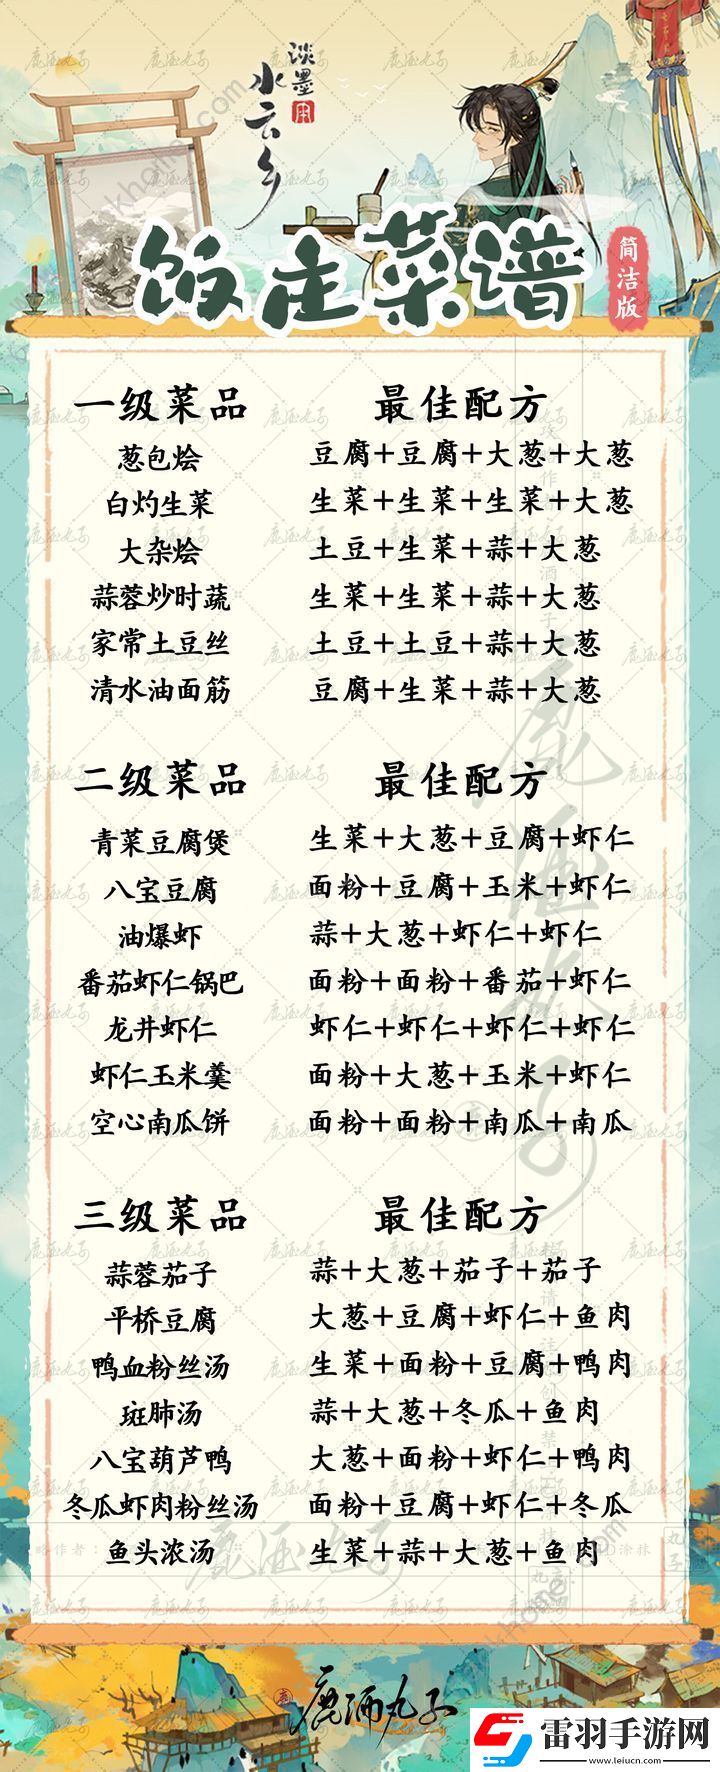 淡墨
水云乡
饭庄菜谱
简洁版
一级菜品 最佳配方
葱包烩 豆腐+豆腐+大葱+大葱
白灼生菜 生菜+生菜+生菜+大葱
大杂烩 土豆+生菜+蒜+大葱
蒜蓉炒时蔬 生菜+生菜+蒜+大葱
家常土豆丝 土豆+土豆+蒜+大葱
清水油面筋 豆腐+生菜+蒜+大葱
二级菜品 最佳配方
青菜豆腐煲 生菜+大葱+豆腐+虾仁
八宝豆腐 面粉+豆腐+玉米+虾仁
油爆虾 蒜+大葱+虾仁+虾仁
番茄虾仁锅巴 面粉+面粉+番茄+虾仁
龙井虾仁 虾仁+虾仁+虾仁+虾仁
虾仁玉米羹 面粉+大葱+玉米+虾仁
空心南瓜饼 面粉+面粉+南瓜+南瓜
三级菜品 最佳配方
蒜蓉茄子 蒜+大葱+茄子+茄子
平桥豆腐 大葱+豆腐+虾仁+鱼肉
鸭血粉丝汤 生菜+面粉+豆腐+鸭肉
斑肺汤 蒜+大葱+冬瓜+鱼肉
八宝葫芦鸭 大葱+面粉+虾仁+鸭肉
冬瓜虾肉粉丝汤 面粉+豆腐+虾仁+冬瓜
鱼头浓汤 生菜+蒜+大葱+鱼肉
鹿洒丸子
雷羽手游网
www.leiucn.com